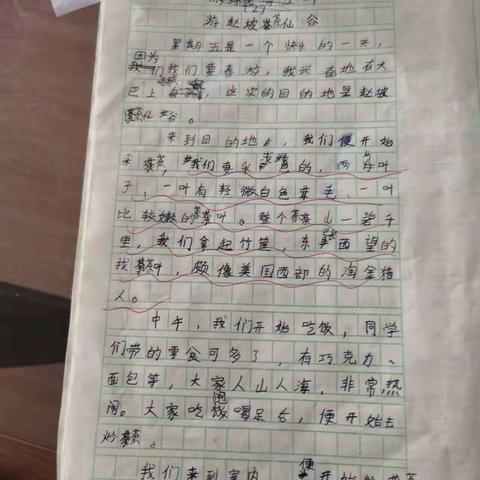 (2)
游赵坡茶仙谷
星期五是一个快乐的一天，
因为
我们我们要春游，我兴奋地在大
巴上，这次的目的地是赵坡
茶仙谷。
来到目的地后，我们便开始
采茶，我们要采的，两片叶
子，一叶有轻微白色茸毛，一叶
比较嫩的茶叶。整个茶山一碧千
里，我们拿起竹篮，东张西望的
找茶叶，颇像美国西部的淘金猎
人。
中午，我们开始吃饭，同学
们带的零食可多了，有巧克力、
面包等，大家人山人海，非常热
闹。大家吃饱喝足后，便开始去
炒茶。
我们来到室内 便开始炒茶